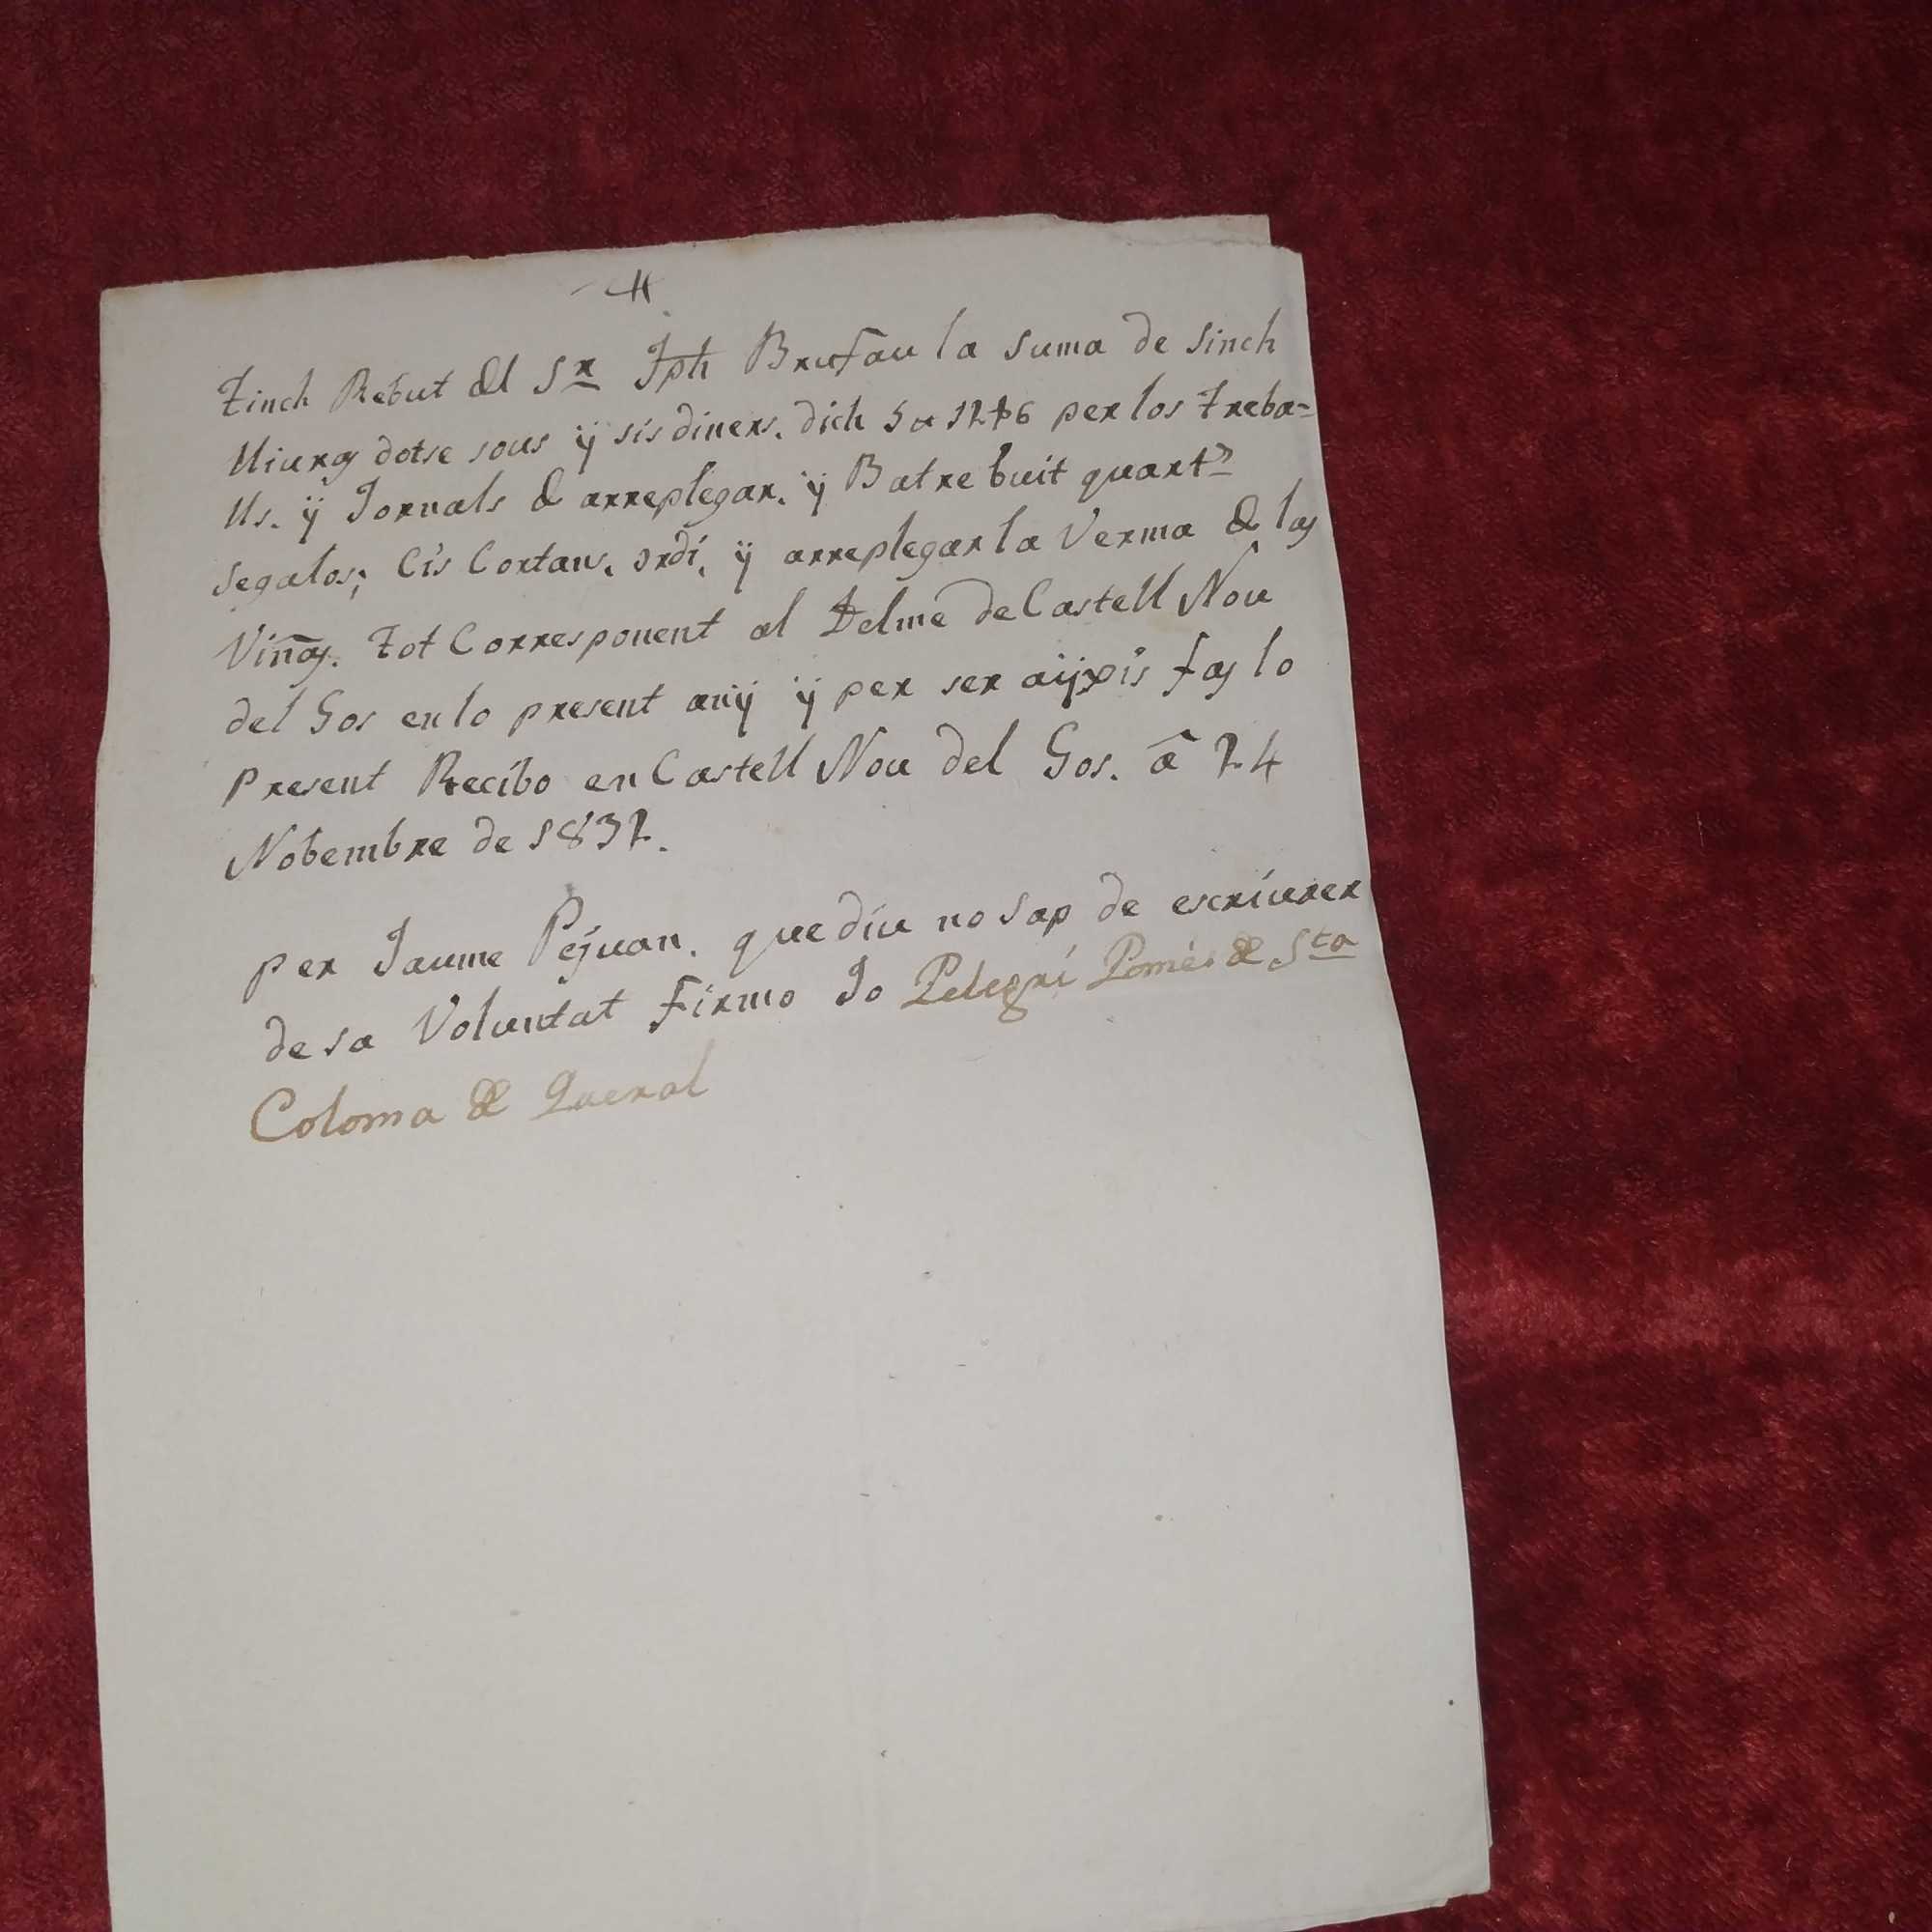 Tinch Rebut del Sr Jph Brufau la suma de sinch
lliuras dotse sous ÿ sis diners. dich 5 12 6 per los treba=
lls. ÿ Jornals de arreplegar. ÿ Batre buit quart
Segalos; Cis Cortans. ordi. ÿ arreplegar la Verma de las
Viñas. tot Corresponent al Delme de Castell Nou
del Gos en lo present anÿ ÿ per ser aÿxis fas lo
present Recibo en Castell Nou del Gos. â 24
Nobembre de 1832.
per Jaume Pejuan. que diu no sap de escriurer
de sa Voluntat firmo Jo Pelegri Pomés de Sta
Coloma de Queralt